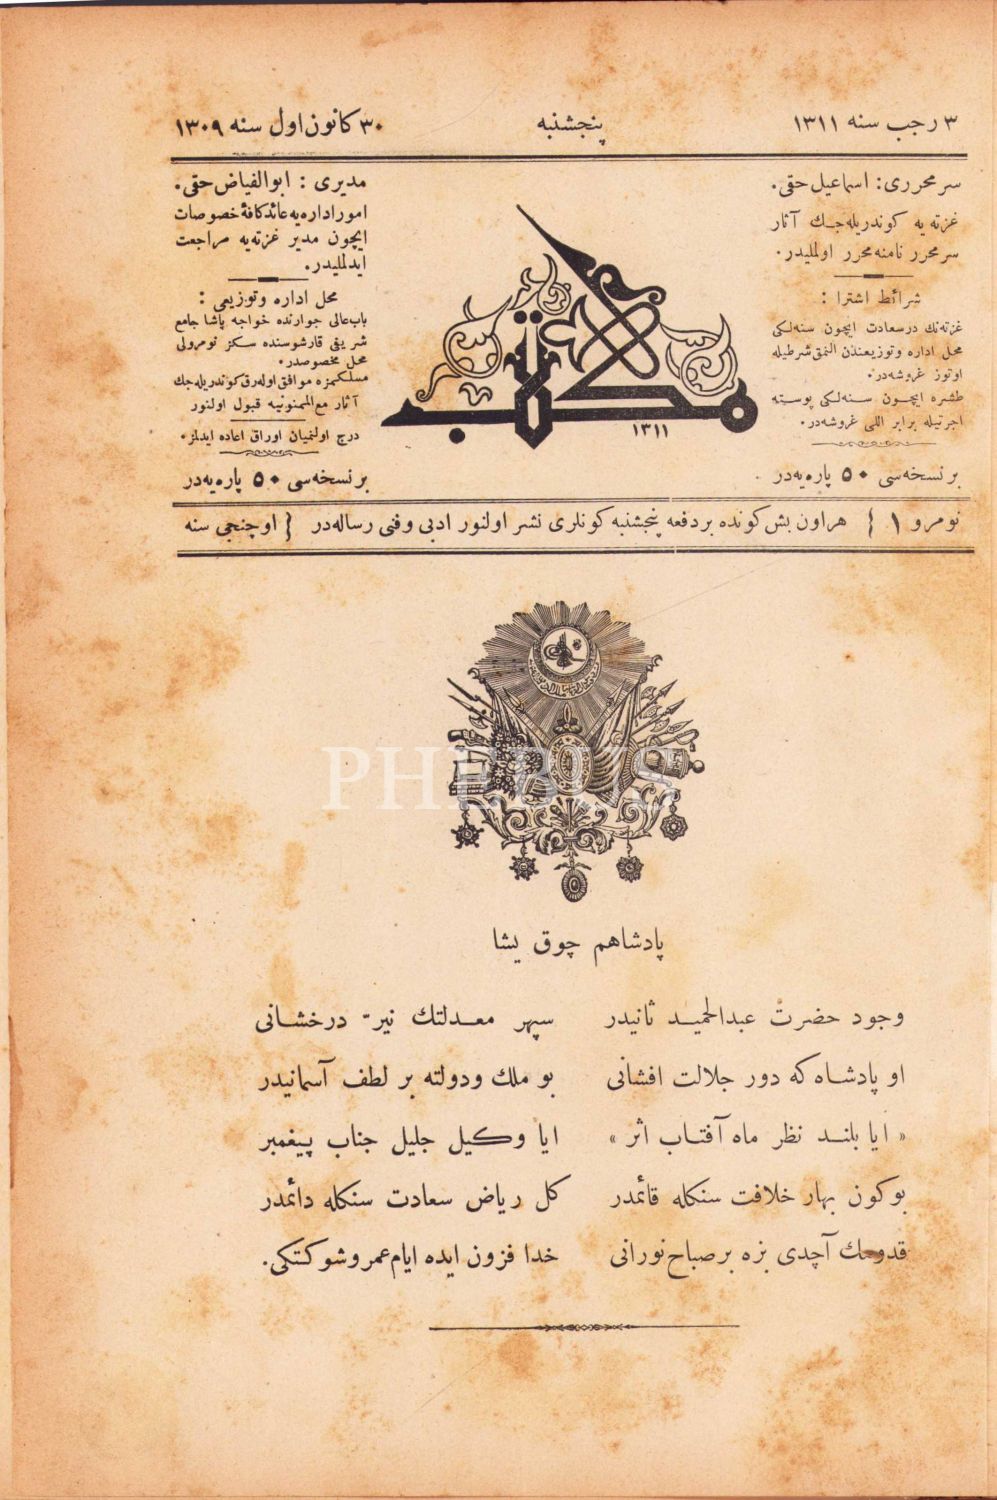 ٣ رجب سنه ١٣١١
پنجشنبه
٣٠ كانون اول سنه ١٣٠٩
سر محررى : اسماعيل حقى.
غزته يه كوندريله جك آثار
سر محرر نامنه محرر اولمليدر.
شرائط اشترا :
غزته نك درسعادت ايچون سنه لكى
محل اداره و توزيعندن آلنمق شرطيله
اوتوز غروشه در.
طشره ايچون سنه لكى پوسته
اجرتيله برابر اللى غروشه در.
بر نسخه سى ٥٠ پاره يه در
مكتب
١٣١١
مديرى : ابوالفياض حقى.
امور اداره يه عائد كافۀ خصوصات
ايچون مدير غزته يه مراجعت
ايدلمليدر.
محل اداره و توزيعى :
باب عالى جوارنده خواجه پاشا جامع
شريفى قارشوسنده سكز نومرولى
محل مخصوصدر.
مسلكمزه موافق اوله رق كوندريله جك
آثار مع الممنونيه قبول اولنور
درج اولنميان اوراق اعاده ايدلمز.
بر نسخه سى ٥٠ پاره يه در
نومرو ١ { هر اون بش كونده بر دفعه پنجشنبه كونلرى نشر اولنور ادبى و فنى رساله در { اوچنجى سنه
پادشاهم چوق يشا
وجود حضرت عبدالحميد ثانيدر سپهر معدلتك نيّر درخشانى
او پادشاه كه دور جلالت افشانى بو ملك و دولته بر لطف آسمانيدر
« ايا بلند نظر ماه آفتاب اثر » ايا وكيل جليل جناب پيغمبر
بوكون بهار خلافت سنكله قائمدر كل رياض سعادت سنكله دائمدر
قدومك آچدى بزه بر صباح نورانى خدا فزون ايده ايام عمر و شوكتكى.
PHEBUS